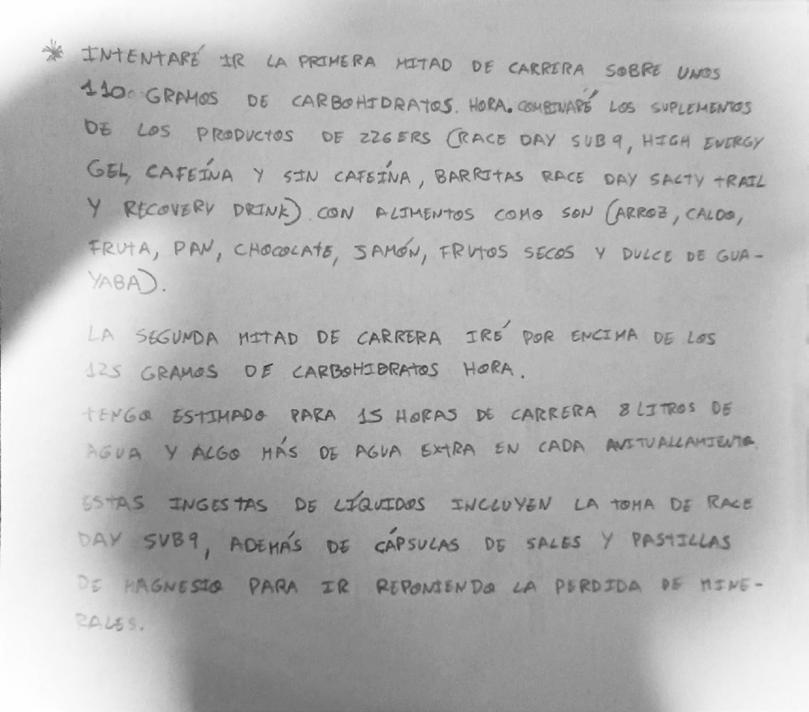 * INTENTARÉ IR LA PRIMERA MITAD DE CARRERA SOBRE UNOS
110 GRAMOS DE CARBOHIDRATOS. HORA. COMBINARÉ LOS SUPLEMENTOS
DE LOS PRODUCTOS DE 226ERS (RACE DAY SUB9, HIGH ENERGY
GEL, CAFEÍNA Y SIN CAFEÍNA, BARRITAS RACE DAY SALTY TRAIL
Y RECOVERY DRINK) CON ALIMENTOS COMO SON (ARROZ, CALDO,
FRUTA, PAN, CHOCOLATE, JAMÓN, FRUTOS SECOS Y DULCE DE GUA-
YABA).
LA SEGUNDA MITAD DE CARRERA IRÉ POR ENCIMA DE LOS
125 GRAMOS DE CARBOHIBRATOS HORA.
TENGO ESTIMADO PARA 15 HORAS DE CARRERA 8 LITROS DE
AGUA Y ALGO MÁS DE AGUA EXTRA EN CADA AVITUALLAMIENTO.
ESTAS INGESTAS DE LÍQUIDOS INCLUYEN LA TOMA DE RACE
DAY SUB9, ADEMÁS DE CÁPSULAS DE SALES Y PASTILLAS
DE MAGNESIO PARA IR REPONIENDO LA PERDIDA DE MINE-
RALES.